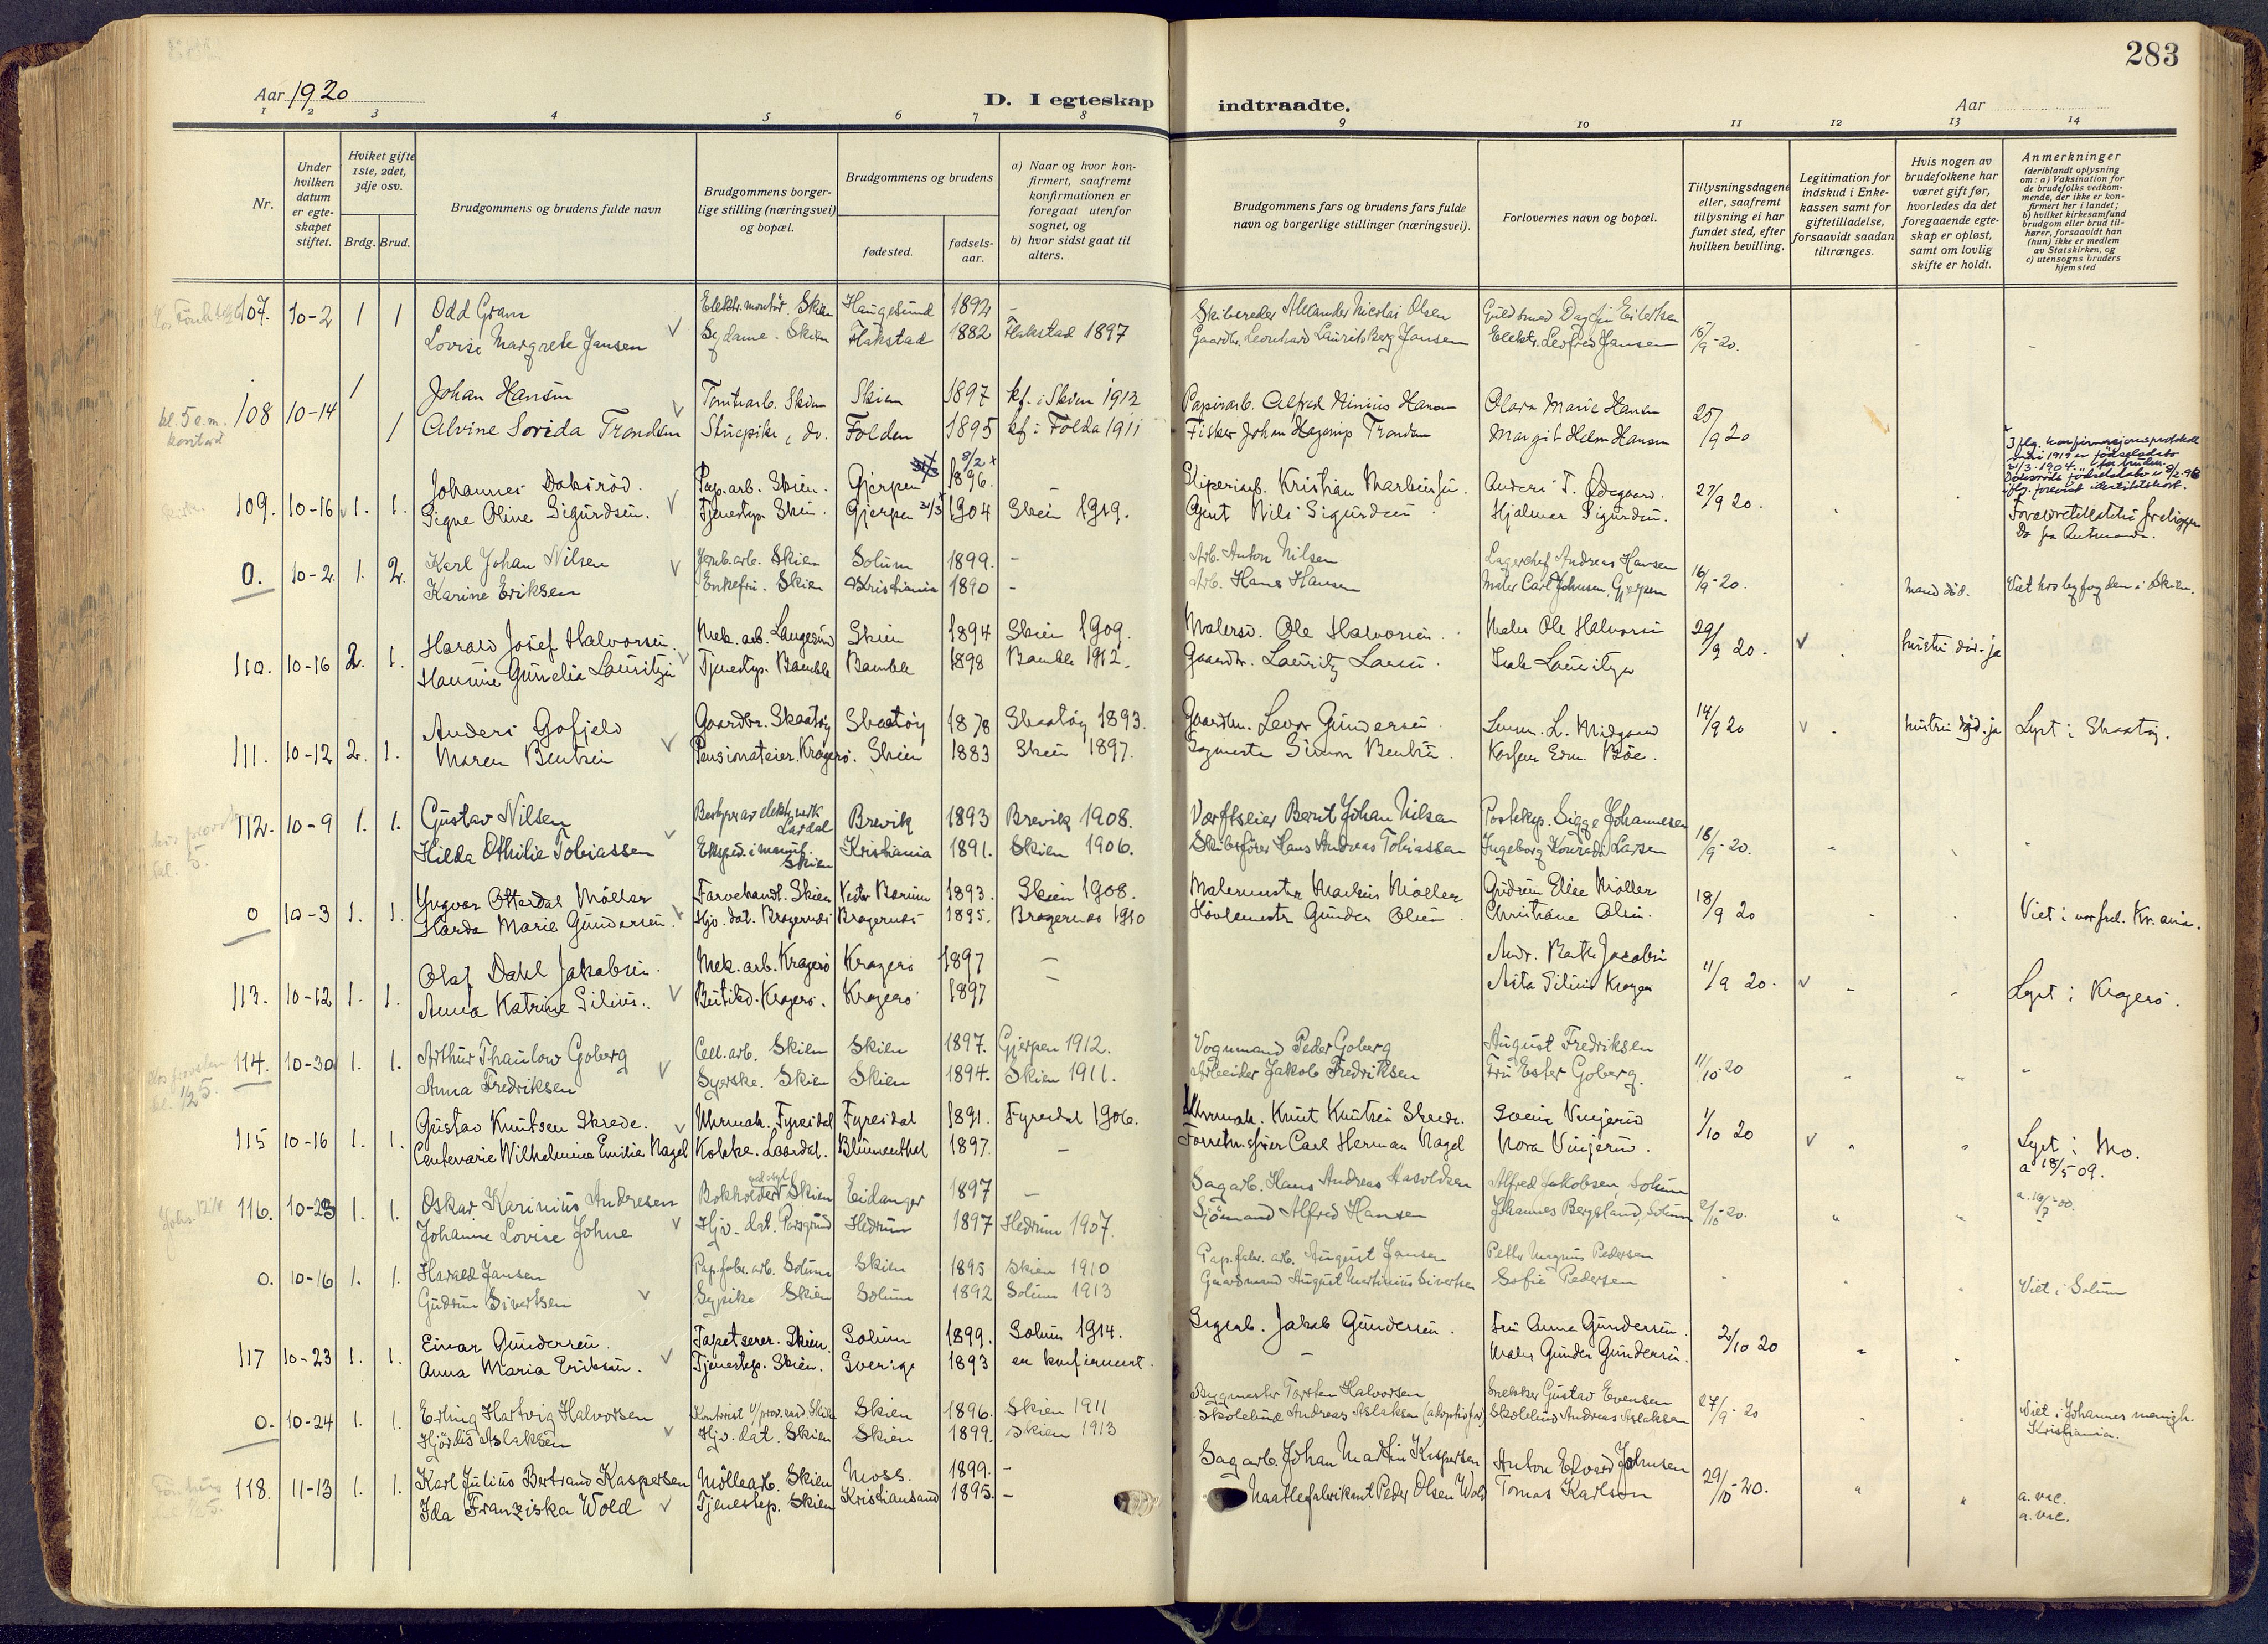 283
Aar 1920
D. I egteskap indtraadte.
Aar
1 2 3 4 5 6 7 8 9 10 11 12 13 14
Nr.
Under hvilken datum er egteskapet stiftet.
Hviket gifte 1ste, 2det, 3dje osv.
Brdg. Brud.
Brudgommens og brudens fulde navn
Brudgommens borgerlige stilling (næringsvei) og bopæl.
Brudgommens og brudens
fødested.
fødselsaar.
a) Naar og hvor konfirmert, saafremt konfirmationen er foregaat utenfor sognet, og
b) hvor sidst gaat til alters.
Brudgommens fars og brudens fars fulde navn og borgerlige stillinger (næringsvei).
Forlovernes navn og bopæl.
Tillysningsdagene eller, saafremt tillysning ei har fundet sted, efter hvilken bevilling.
Legitimation for indskud i Enkekassen samt for giftetilladelse, forsaavidt saadan tiltrænges.
Hvis nogen av brudefolkene har været gift før, hvorledes da det foregaaende egteskap er opløst, samt om lovlig skifte er holdt.
Anmerkninger (deriblandt oplysning om: a) Vaksination for de brudefolks vedkommende, der ikke er konfirmert her i landet; b) hvilket kirkesamfund brudgom eller brud tilhører, forsaavidt han (hun) ikke er medlem av Statskirken, og c) utensogns bruders hjemsted
107. 10-2 1 1 Odd Gram Elektr. montör. Skien Haugesund 1892 - Skibsreder Alexander Nicolai Olsen Guldsmed Dagfin Eilertsen
Lovise Margrete Jansen Sydame. Skien Flakstad 1882 Flakstad 1897 Gaardbr. Leonhard Laurits Berg Jansen Elektr. Leofred Jansen 16/9-20.
kl. 5 e.m. kontoret
108 10-14 1 Johan Hansen Tomtearb. Skien Skien 1897 kf. i Skien 1912 Papirarb. Alfred Ninius Hansen Olava Marie Hansen 25/9 20
1 Alvine Sorida Trondsen Stuepike, do. Folden 1895 kf i Folda 1911 Fisker Johan Hagerup Trondsen Margit Helm Hansen
109. 10-16 1. 1. Johannes Dalsrød. Pap.arb. Skien. Gjerpen 8/2 1896. - Sliperiarb. Kristian Marbinsen. Anders T. Ødegaard. 27/9 20.
Signe Oline Sigurdsen. Tjenestep. Skien Gjerpen 21/3 1904 Skien 1919. Agent Nils Sigurdsen Hjalmar Sigurdsen.
Iflg. konfirmasjonsprotokoll
21/3-1904
0. 10-2. 1. 2. Karl Johan Nilsen Jernb.arb. Skien Solum 1899. - Arb. Anton Nilsen Lagerchef Andreas Hansen
Karine Eriksen Enkefru. Skien Kristiania 1890 - Arb. Hans Hansen Maler Carl Johnsen, Gjerpen 16/9-20. mand död. Viet hos byfogden i Skien.
110. 10-16 2. 1. Harald Josef Halvorsen. Mek. arb. Langesund Skien 1894 Skien 1909. Malersv. Ole Halvorsen. Maler Ole Halvorsen 29/9 20. hustru död. ja
Hansine Gunelia Lauritzen Tjenestep. Bamble Bamble 1898 Bamble 1912. Gaardbr. Lauritz Larsen. Isak Lauritzen
111. 10-12 2. 1. Anders Gofjeld Gaardbr. Skaatöy Skaatöy 1878 Skaatöy 1893. Gaardbr. Levor Gundersen Lensm. L. Midgaard 14/9 20 hustru död. ja Lyst i Skaatöy.
Maren Bentsen Pensionateier. Kragerö. Skien 1883 Skien 1897. Simon Bentsen. Edm. Böe.
112. 10-9 1. 1. Gustav Nilsen Bestyrer av elektr. verk Lardal Brevik 1893 Brevik 1908. Værftseier Berit Johan Nilsen Posteksp. Sigge Johannesen
Hilda Othilie Tobiassen Eksped. i manuf. Skien Kristiania 1891. Skien 1906. Skibsfører Hans Andreas Tobiassen Ingeborg Konradi Larsen 18/9-20.
0 10-3 1. 1. Yngvar Otterdal Möller Farvehandl. Skien Vestre Bærum 1893. Skien 1908. Malermester Markus Möller Gudrun Elise Möller 18/9 20
Harda Marie Gundersen. Hjv. dat. Bragernes Bragernes 1895. Bragernes 1910 Høvlemester Gunder Olsen. Christiane Olsen. Viet i vor frel. Kr.ania.
113. 10-12 1. 1. Olaf Dahl Jakobsen. Mek. arb. Kragerö Kragerö 1897 - Andr. Jacobsen 11/9 20.
Anna Katrine Silius. Butikd. Kragerö. Kragerö 1897 - Asta Silius Kragerö Lyst i Kragerö.
hos provsten kl. 1/2 5.
114. 10-30 1. 1. Arthur Thaulow Goberg Cell. arb. Skien Skien 1897. Gjerpen 1912. Vognmand Peder Goberg August Fredriksen
Anna Fredriksen Syerske. Skien Skien 1894. Skien 1911. Arbeider Jakob Fredriksen Fru Ester Goberg. 11/10-20
115 10-16 1. 1. Gustav Knutsen Skrede. Uhrmak. Fyresdal Fyresdal 1891. Fyresdal 1906. Uhrmak. Knut Knutsen Skrede. Svein Vinjerud 1/10 20
Centenarie Wilhelmine Emilie Nagel Kokke. Laardal. Blumenthal 1897. - Carl Herman Nagel Nora Vinjerud. Lyst i Mo.
a 18/5 09.
116. 10-23 1. 1. Oskar Karinius Andresen Bokholder Skien Eidanger 1897 - Sagarb. Hans Andreas Hasvoldsen Alfred Jakobsen, Solum
Johanne Lovise Johne Hjv. dat. Porsgrund Hedrum 1897 Hedrum 1907. Sjömand Alfred Hansen Johannes Bergsland, Solum 2/10-20.
0. 10-16 1. 1. Harald Jansen Pap.fabr. arb. Solum Skien 1895 Skien 1910 Pap.fabr. arb. August Jansen Petter Magnus Pedersen
Gudrun Sivertsen Sypike Skien Solum 1892 Solum 1913 Gaardmand August Martinius Sivertsen Sofie Pedersen Viet i Solum
117 10-23 1. 1. Einar Gundersen. Tapetserer. Skien. Solum 1899. Solum 1914. Jakob Gundersen. Fru Anne Gundersen. 2/10 20
Anna Maria Eriksen. Tjenestep. Skien. Sverige 1893 er konfirmert. - Maler Gunder Gundersen.
0. 10-24 1. 1. Erling Hartvig Halvorsen Skien 1896. Skien 1911 Bygmester Torsten Halvorsen Snekker Gustav Evensen 27/9-20
Hjördis Aslaksen Hjv. dat. Skien Skien 1899. Skien 1913 Andreas Aslaksen (adoptivfar) Andreas Aslaksen Viet i Johannes menigh. Kristiania.
118. 11-13 1. 1. Karl Julius Bertrand Kaspersen Möllearb. Skien Moss. 1899. - Sagarb. Johan Martin Kaspersen Anton Edvard Johnsen
Ida Franziska Wold Tjenestep. Skien Kristiansand 1895. - Peder Olsen Wold Tomas Karlsen 29/10-20. a. vac.
a. vac.